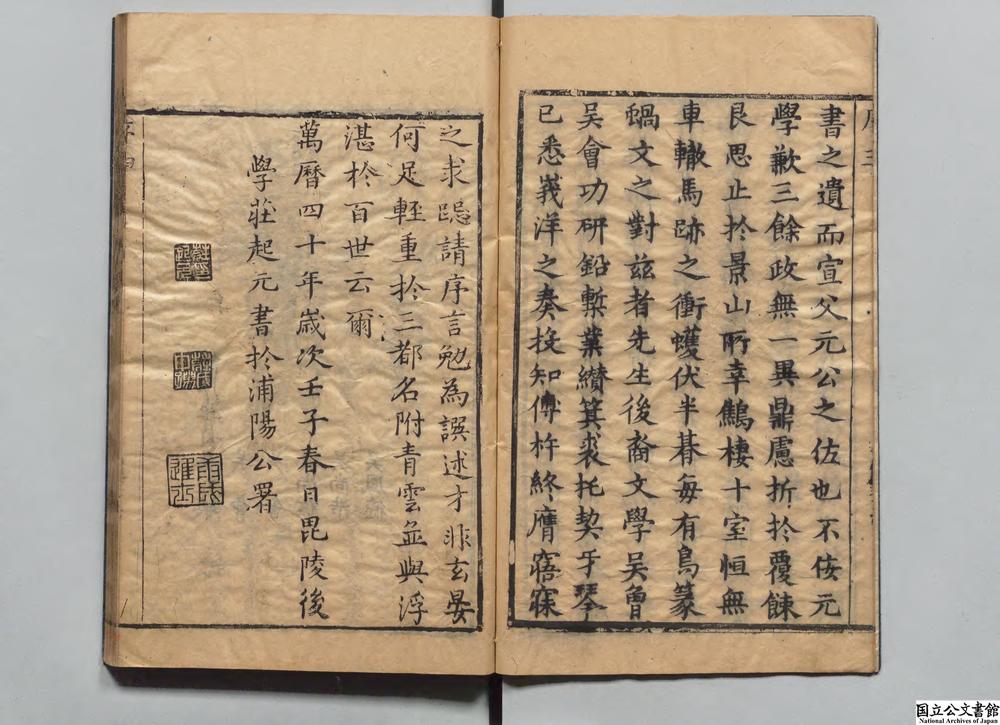 書之遺而宣父元公之佐也不佞元
學歉三餘政無一異鼎慮折於覆餗
艮思止於景山所幸鷦棲十室恒無
車轍馬跡之衝蠖伏半碁每有鳥篆
蝸文之對玆者先生後裔文學吳曾
吳會功研鉛槧業纉箕裘托契牙琴
已悉峩洋之奏投知傅杵終膺寤寐
之求跽請序言勉為譔述才非玄晏
何足輊重扵三都名附青雲並與浮
湛扵百世云爾
萬曆四十年嵗次壬子春日毘陵後
學莊起元書扵浦陽公署
国立公文書館
National Archives of Japan